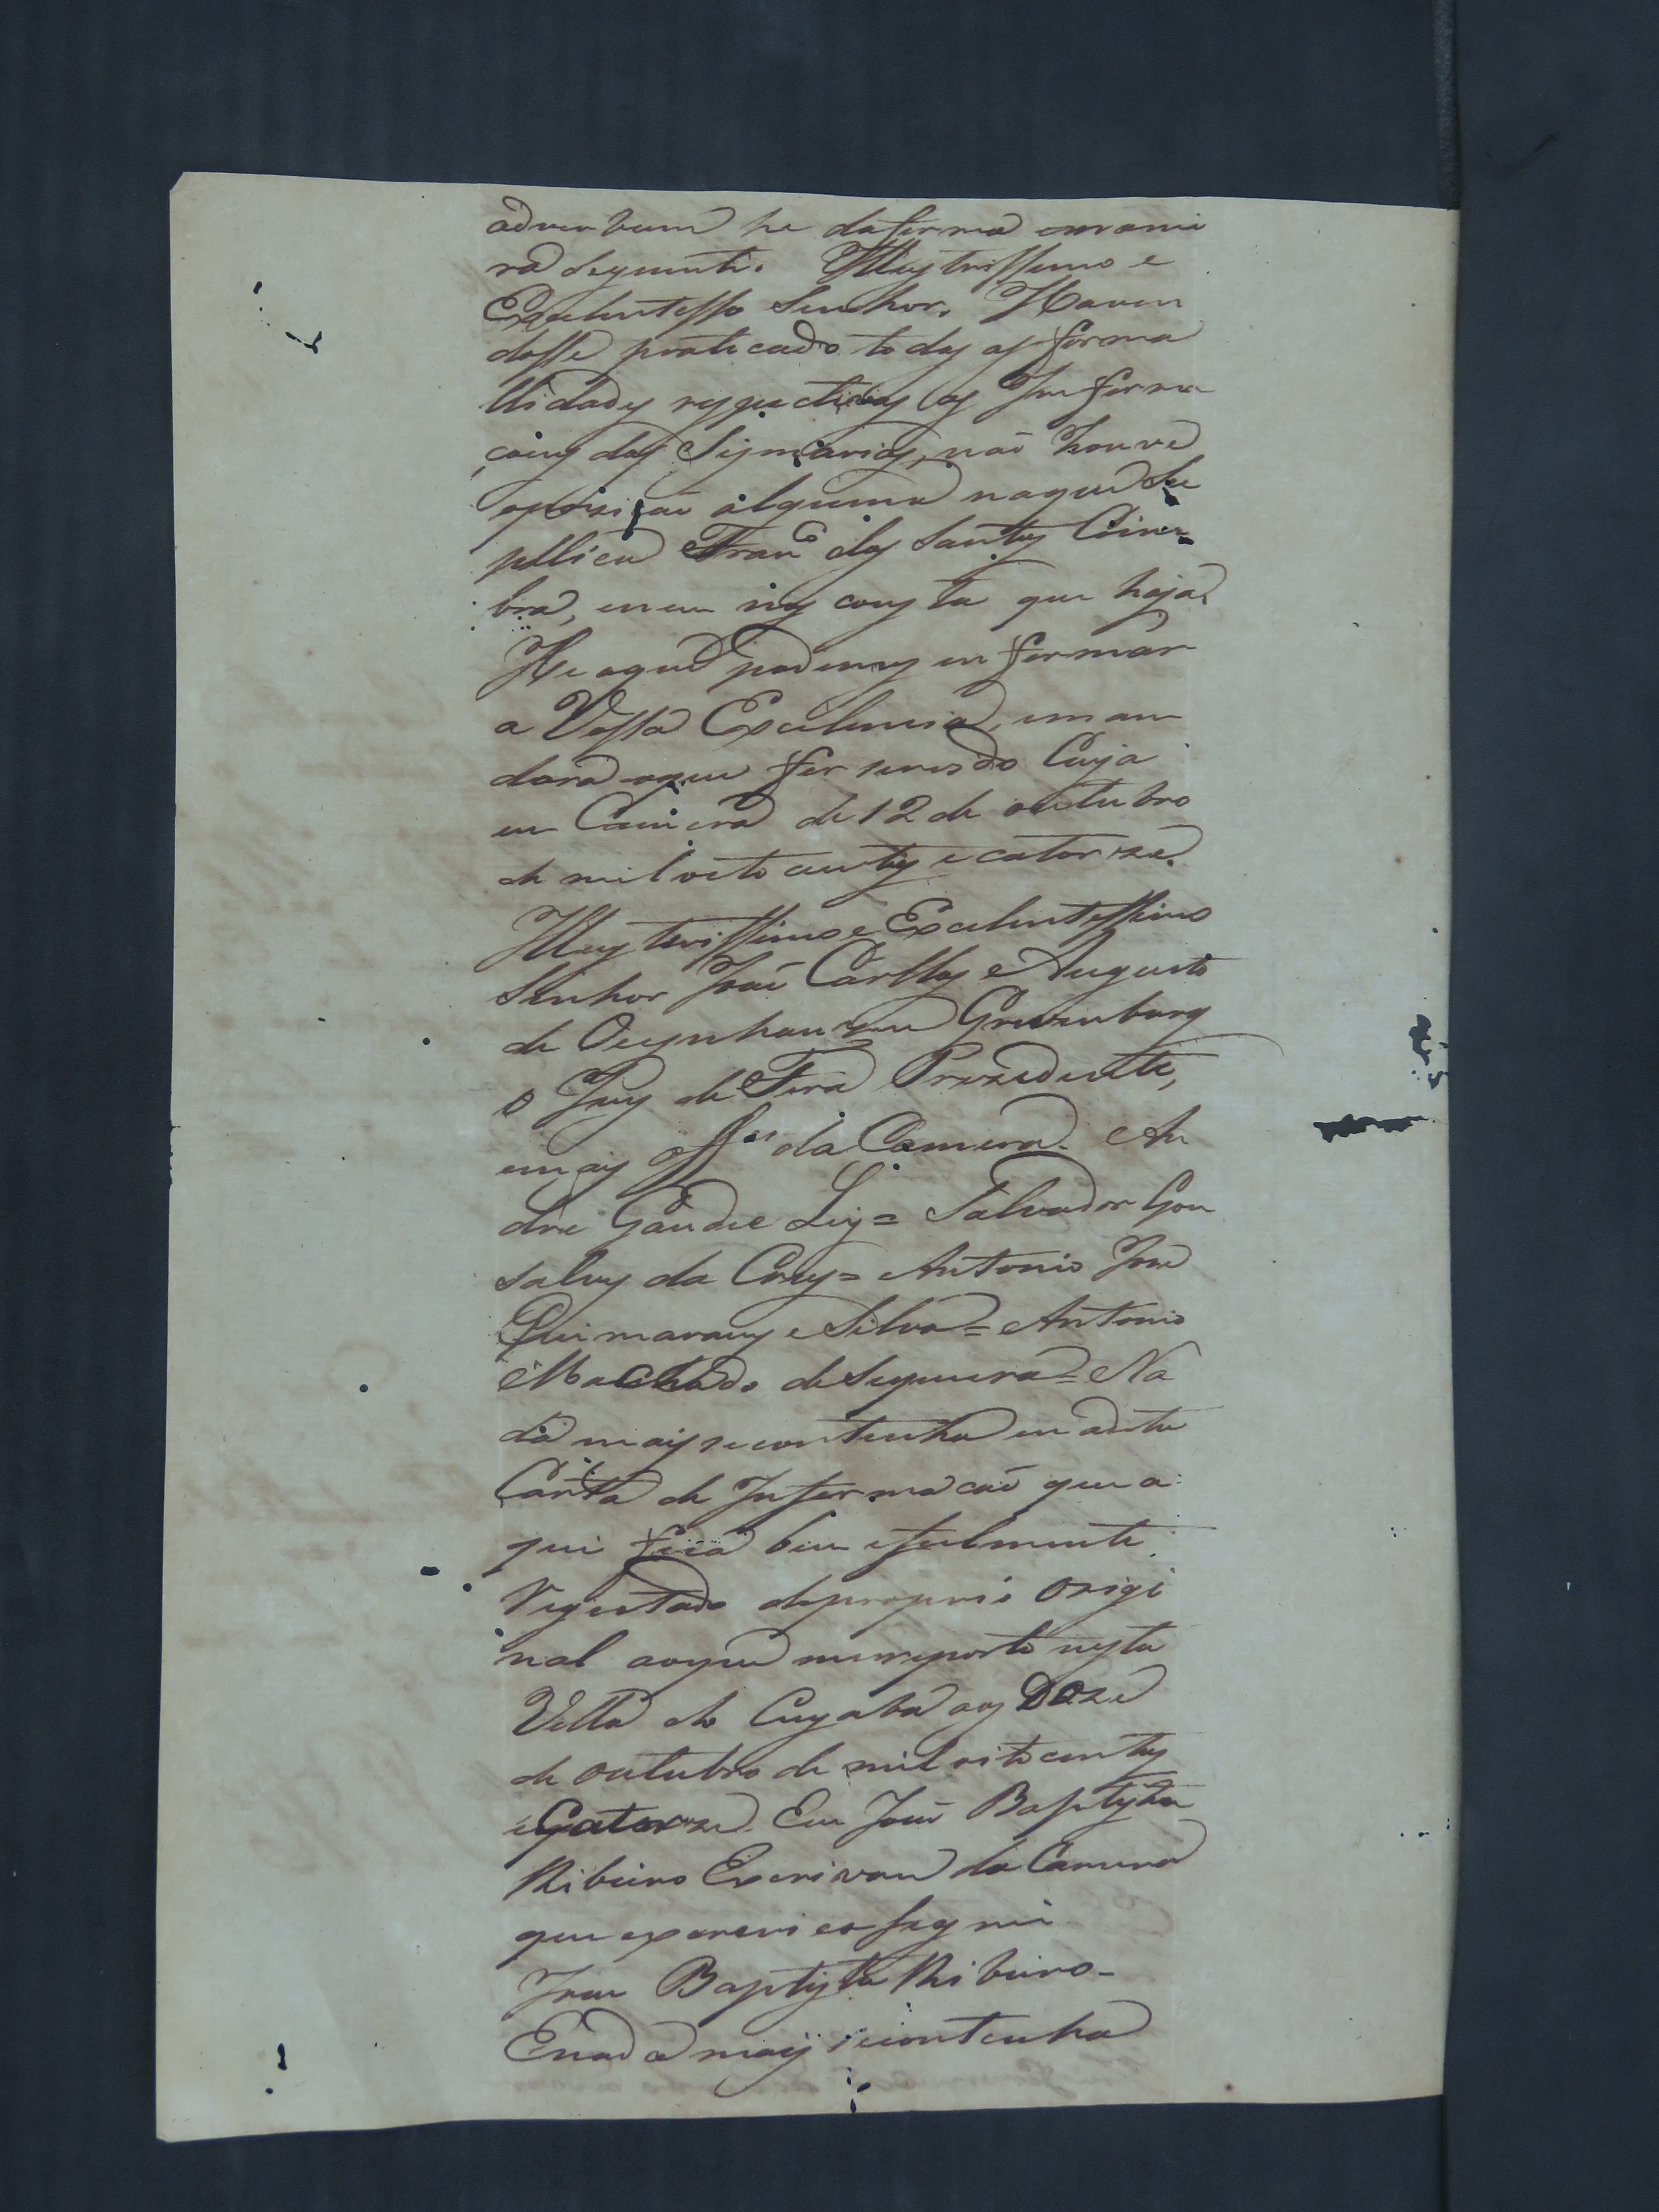 adverbum he daforma emanei
ra seguinte. Illustrissimo e
Excelentisso Senhor. Haven
dosse praticado todas as forma
llidades respectivas as Informa
çoins das Sismarias, não houve
opozição alguma naque Su
pplica Franco dos Santos Coim
bra, enem nos consta que haja.
He oque podemos enformar
a Vossa Excelencia, eman
dará oque for servido Cuja
em Camera de 12 de outubro
de mil oito centos e catorze.
Illustrissimo e Excelentissimo
Senhor João Carllos e Augusto
de Oeynhausen Grevenburg
o Juis de Fora Prezidente,
emais offes da Camera. An
dre Gaudie Leis = Salvador Gon
salves da Crus = Antonio Joze
Guimaraens e Silva = Antonio
Machado de Sequeira = Na
da mais se continha em adita
Carta de Informacão que a
qui fica bem efielmente
Registada do proprio origi
nal aoque me reporto nesta
Villa do Cuyaba aos Doze
de outubro de mil oito centos
e Catorze. Eu João Baptista
Ribeiro Escrivam da Camera
que escrevi e asignei
Joam Baptista Ribeiro -
Enada mais secontinha